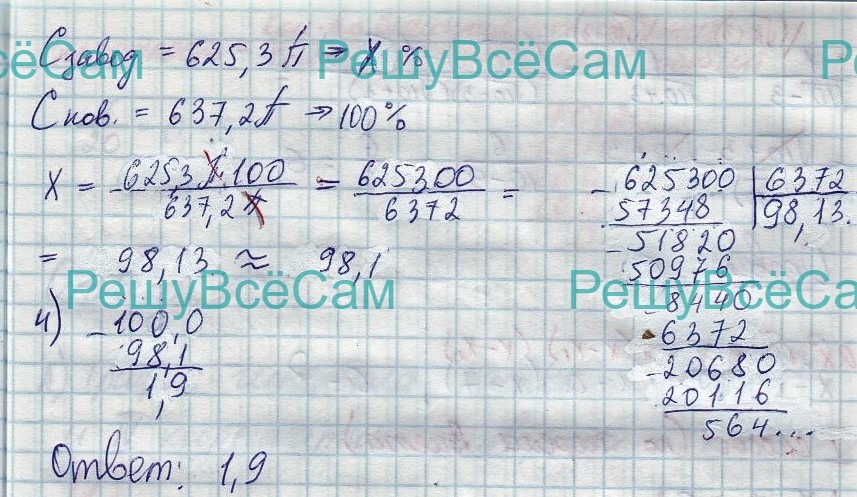 Сзавод = 625,3 А ⇒ X %
РешуВсёСам
Снов. = 637,2 А ⇒ 100%
X = 625,3 А · 100 / 637,2 А = 625300 / 6372 =
= 98,13 ≈ 98,1
РешуВсёСам
РешуВсёСам
4) - 100,0
98,1
1,9
Ответ: 1,9
- 625300 | 6372
57348 | 98,13.
- 51820
50976
- 8440
6372
- 20680
20116
564...